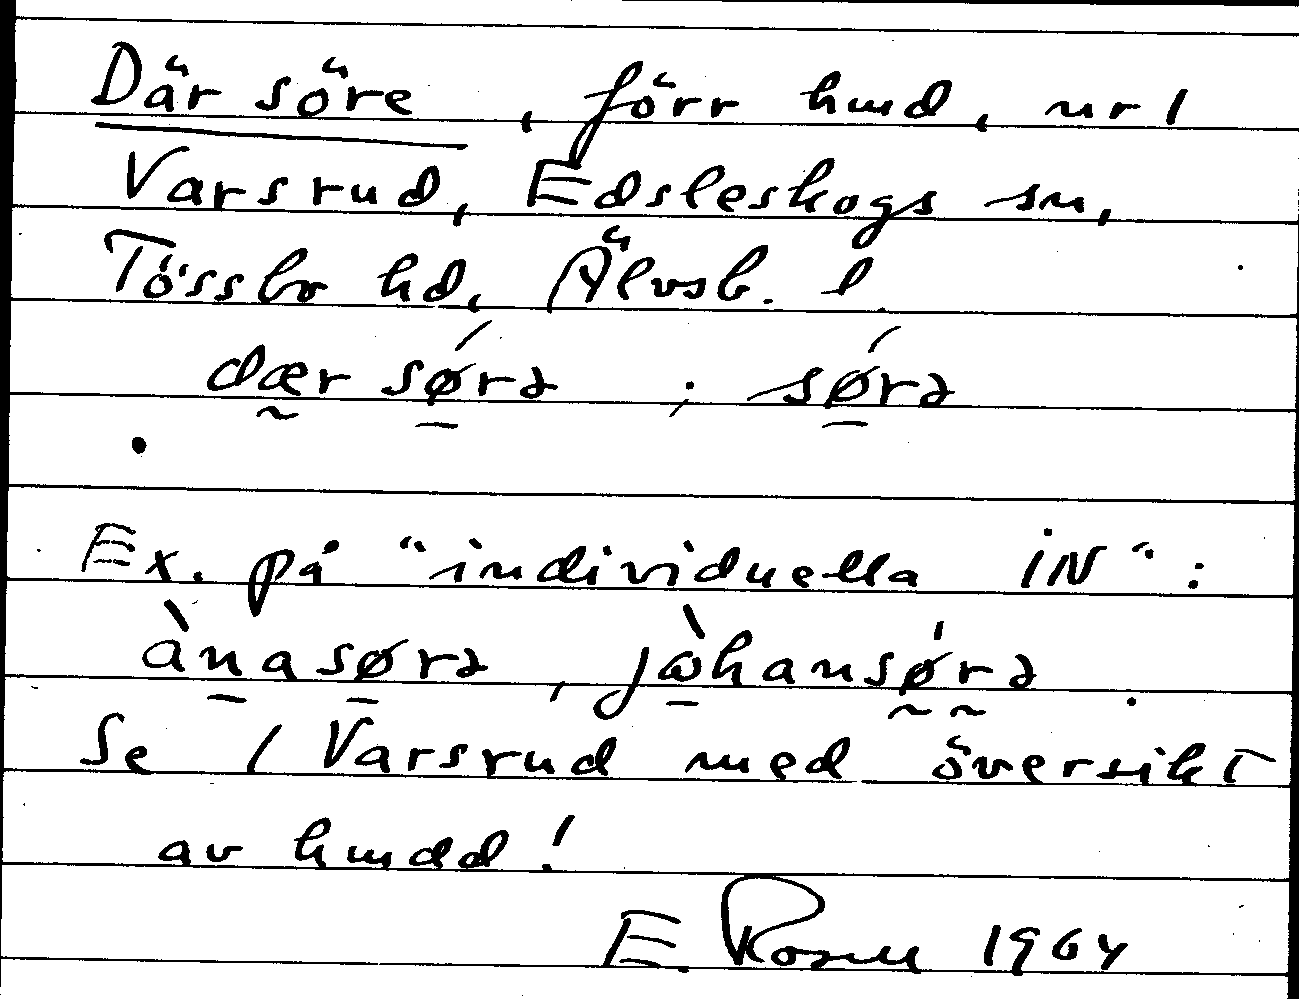 Där söre, förr hmd, nr 1
Varsrud, Edsleskogs sn,
Tössbo hd, Älvsb. l.
dær sǿrə ; sǿrə
Ex. på "individuella iN":
ànasørə, jòhansørə.
Se 1 Varsrud med översikt
av hmdd!
E Rosell 1964